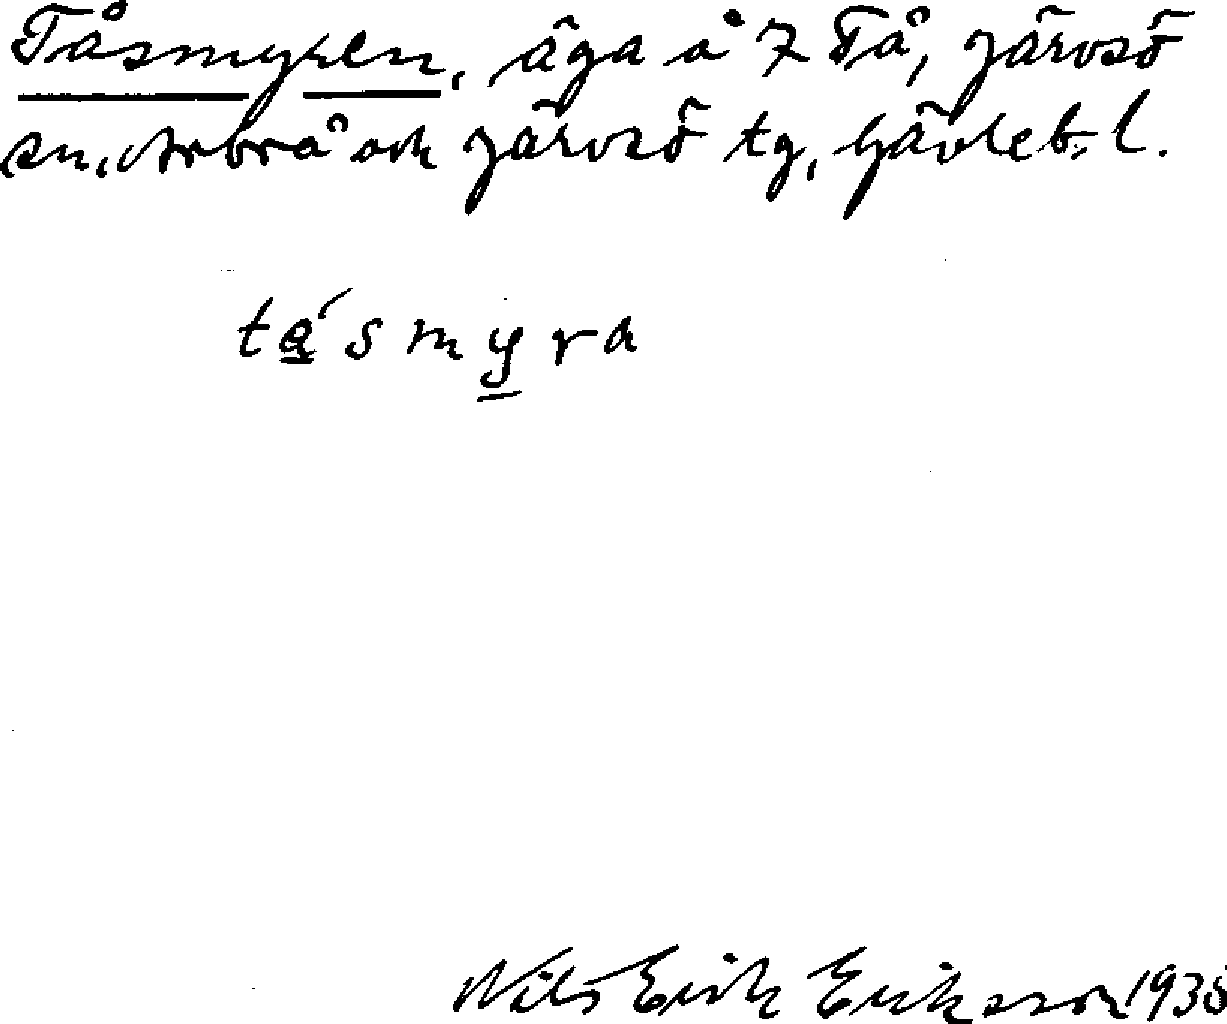 Tåsmyren, äga å 7 Tå, Järvsö
sn, Arbrå och Järvsö tg, Gävleb. l.
tå'smyra
Nils Erik Eriksson 1935